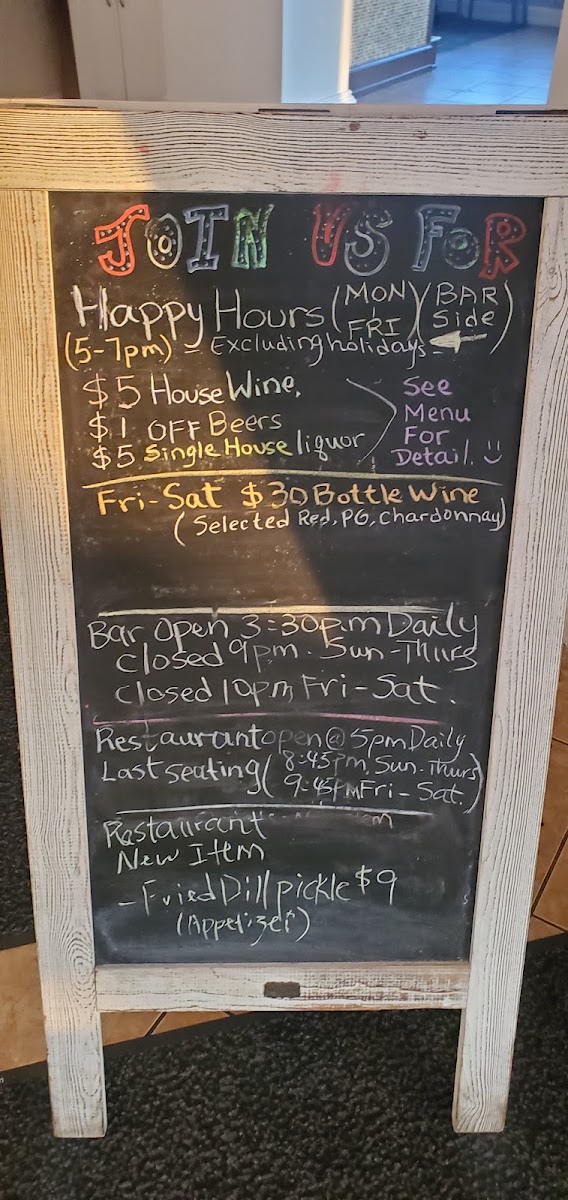 JOIN US FOR
Happy Hours (MON - FRI) (BAR Side)
(5-7pm) - Excluding holidays -
$5 House Wine,
$1 OFF Beers
$5 Single House liquor
See
Menu
For
Detail. :)
Fri-Sat $30 Bottle Wine
(Selected Red, PG, Chardonnay)
Bar Open 3:30pm Daily
closed 9pm. Sun-Thurs
closed 10pm Fri-Sat.
Restaurant open @ 5pm Daily
Last seating (8:45pm, Sun-Thurs
9:45pm Fri-Sat.)
Rastaurant
New Item
- Fried Dill pickle $9
(Appetizer)